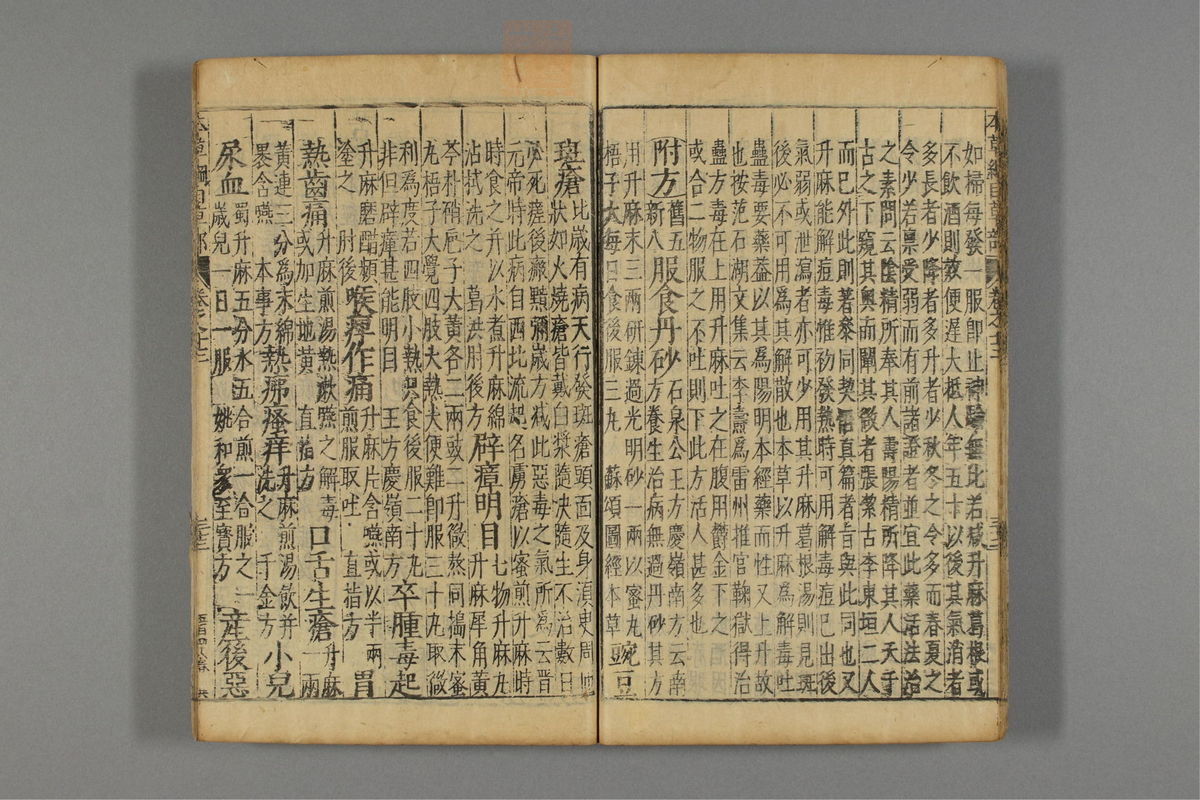 如掃每發一服即止神驗無比若減升麻葛根或
不飲酒則效便遲大抵人年五十以後其氣消者
多長者少降者多升者少秋冬之令多而春夏之
令少若稟受弱而有前諸證者並宜此藥活法治
之素問云陰精所奉其人壽陽精所降其人夭千
古之下窺其奧而闡其微者張潔古李東垣二人
而已外此則著參同契悟真篇者旨與此同也又
升麻能解痘毒惟初發熱時可用解毒痘已出後
氣弱或泄瀉者亦可少用其升麻葛根湯則見斑
後必不可用爲其解散也本草以升麻爲解毒吐
蠱毒要藥葢以其爲陽明本經藥而性又上升故
也按范石湖文集云李燾爲雷州推官鞠獄得治
蠱方毒在上用升麻吐之在腹用鬱金下之
或合二物服之不吐則下此方活人甚多也
附方舊五新八服食丹砂石泉公王方慶嶺南方云南
方養生治病無過丹砂其方
用升麻末三兩研鍊過光明砂一兩以蜜丸
梧子大每日食後服三丸蘇頌圖經本草豌豆
斑瘡比歲有病天行發斑瘡頭面及身須臾周匝
狀如火燒瘡皆戴白漿隨決隨生不治數日
必死瘥後瘢黯彌歲方减此惡毒之氣所爲云晋
元帝時此病自西北流起名虜瘡以蜜煎升麻時
時食之并以水煮升麻綿
沾拭洗之葛洪肘後方辟瘴明目七物升麻丸升麻犀角黃
芩朴硝巵子大黃各二兩豉二升微熬同搗末蜜
丸梧子大覺四肢大熱大便難即服三十丸取微
利爲度若四肢小熱只食後服二十丸
非但辟瘴甚能明目王方慶嶺南方卒腫毒起
升麻磨醋頻
塗之肘後喉痺作痛升麻片含嚥或以半兩
煎服取吐直指方胃
熱齒痛升麻煎湯熱漱嚥之解毒
或加生地黃直指方口舌生瘡升麻一兩
黃連三分爲末綿
裹含嚥本事方熱痱瘙痒升麻煎湯飲并
洗之千金方小兒
尿血蜀升麻五分水五合煎一合服之一
歲兒一日一服姚和衆至寶方產後惡